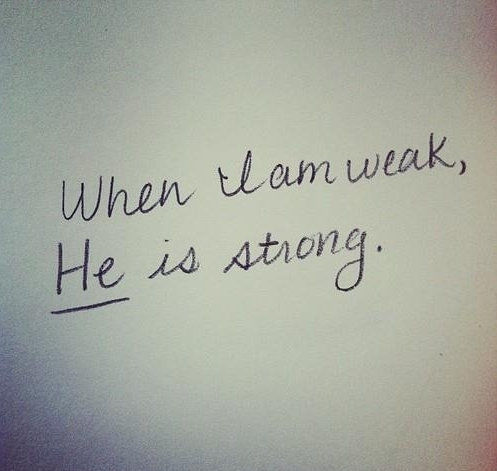 When I am weak,
He is strong.